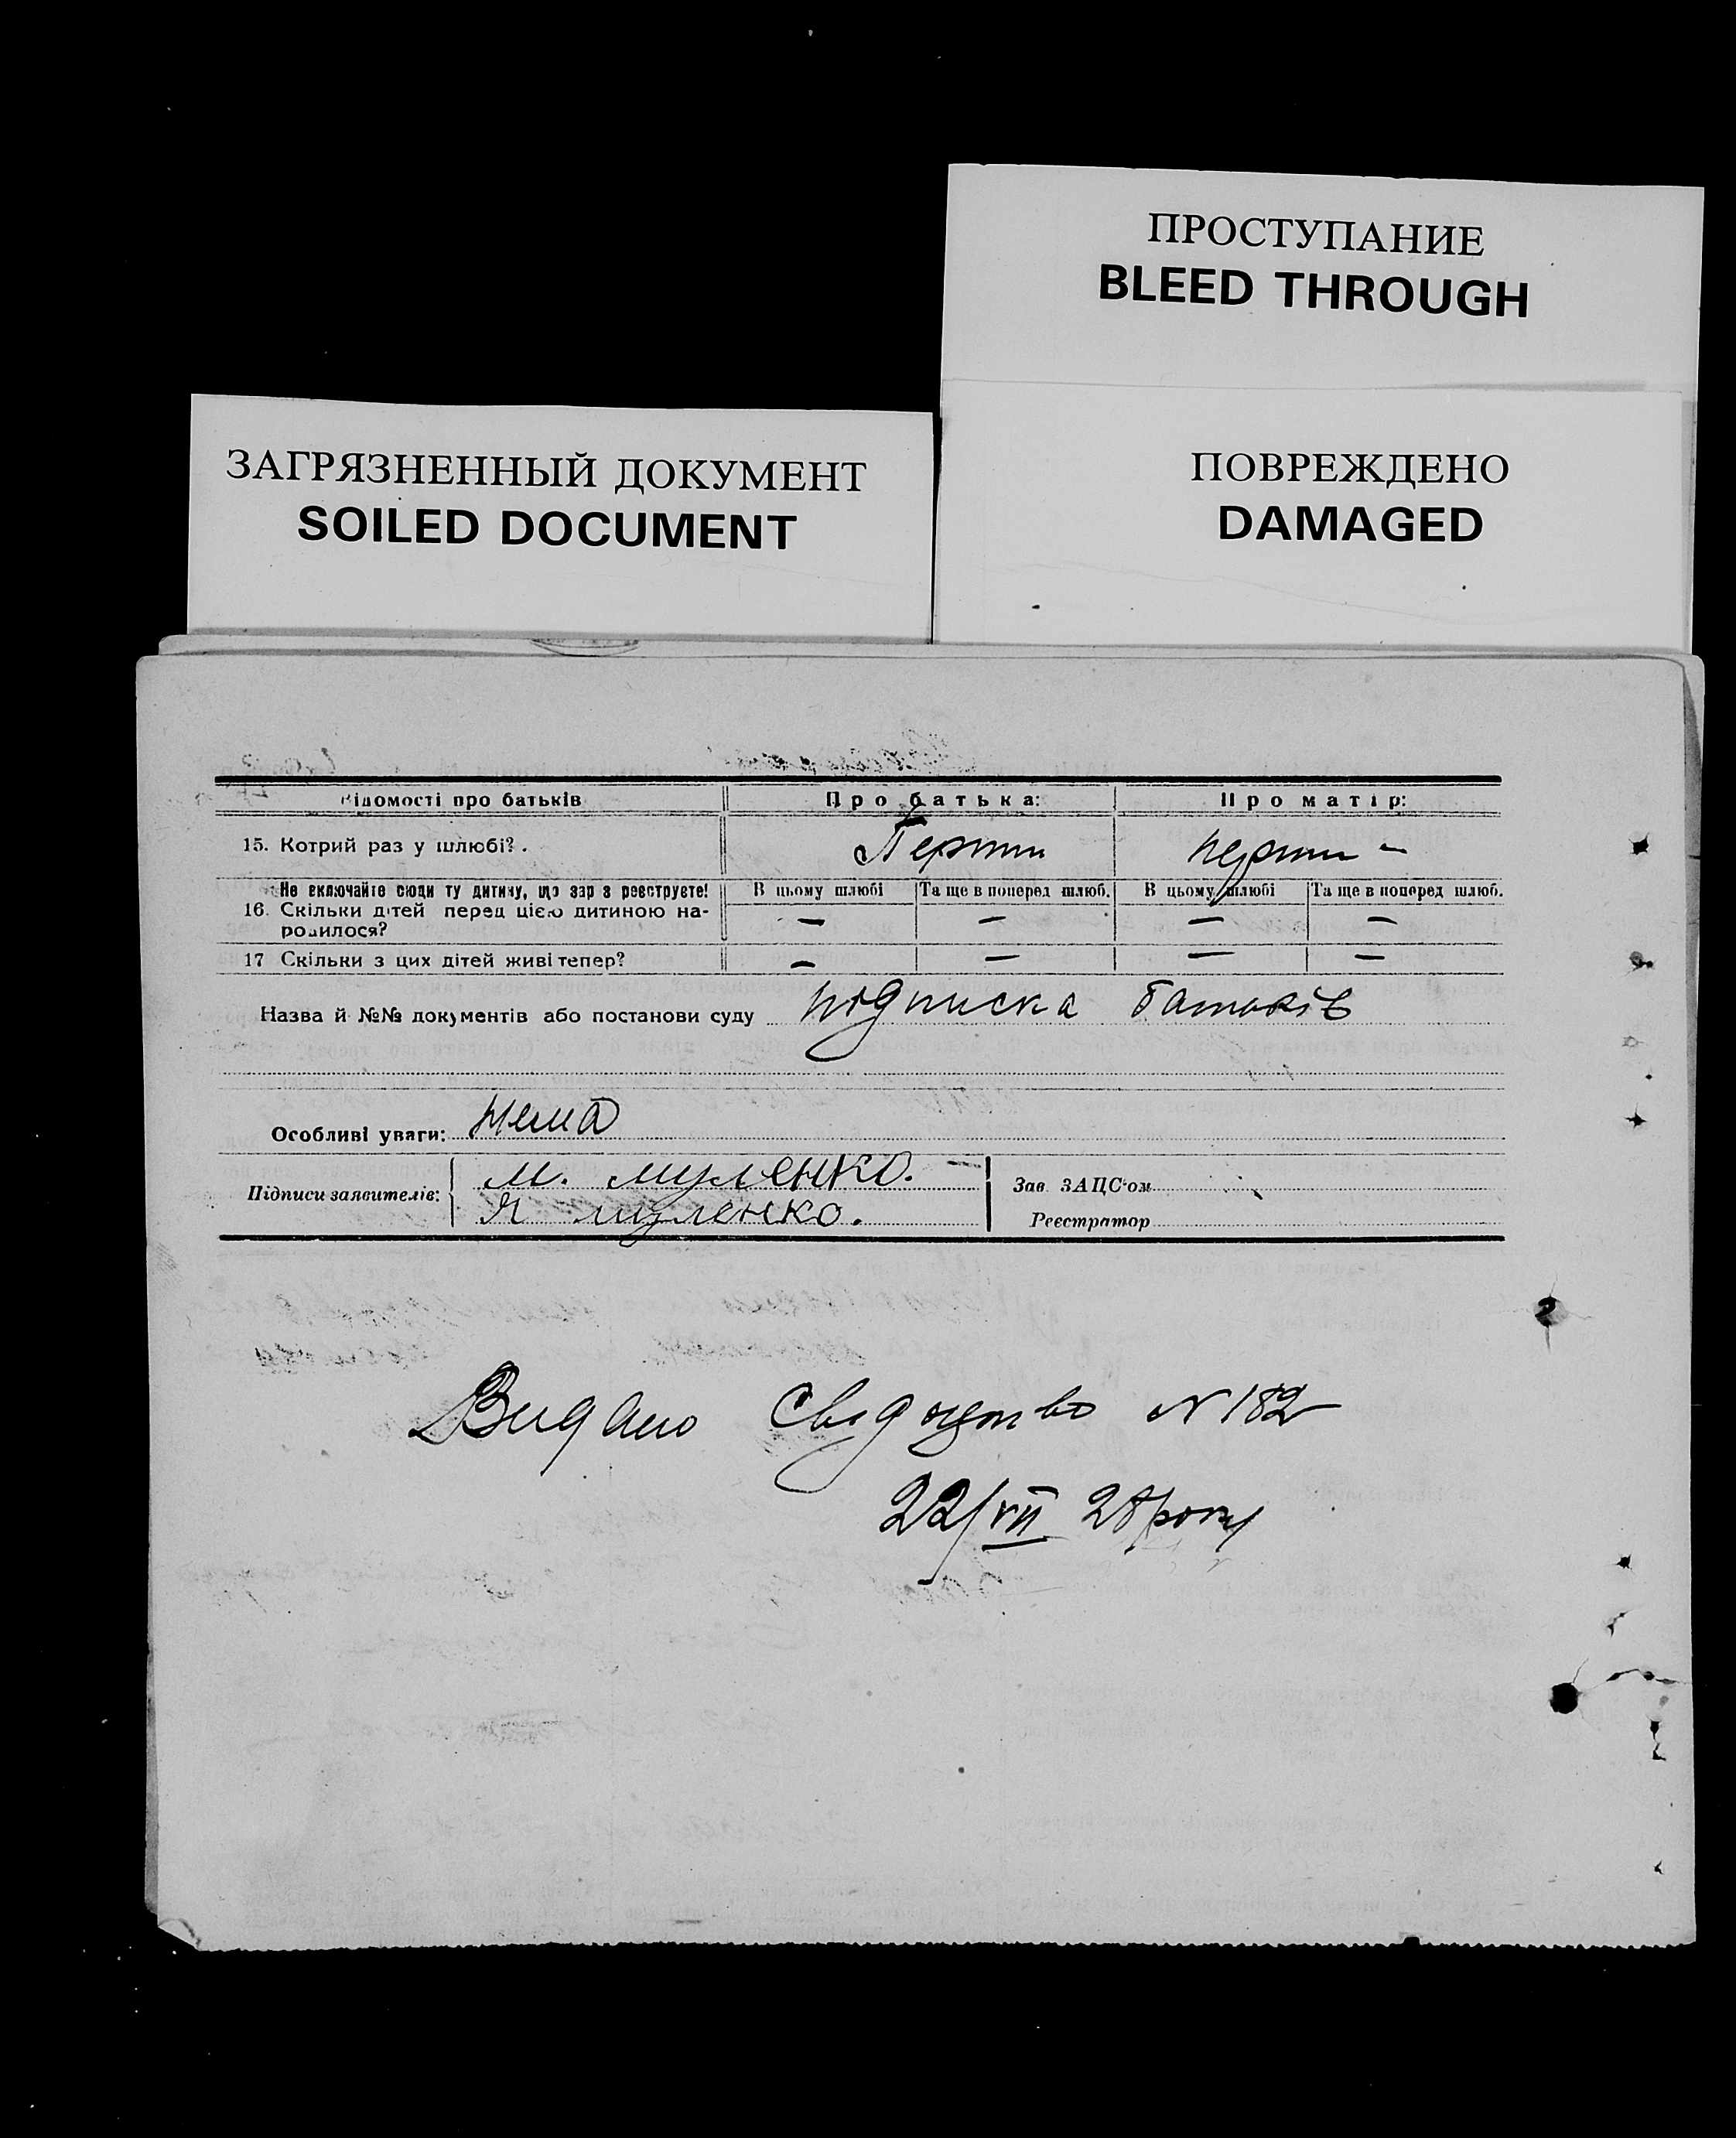 ПРОСТУПАНИЕ
BLEED THROUGH
ЗАГРЯЗНЕННЫЙ ДОКУМЕНТ
SOILED DOCUMENT
ПОВРЕЖДЕНО
DAMAGED
Відомості про батьків
Про батька:
Про матір:
15. Котрий раз у шлюбі?.
Перший
перший -
Не включайте сюди ту дитину, що зараз реєструєте!
16. Скільки дітей перед цією дитиною на-
родилося?
В цьому шлюбі
Та ще в поперед шлюб.
В цьому шлюбі
Та ще в поперед шлюб.
— — — —
17 Скільки з цих дітей живі тепер?
— — — —
Назва й №№ документів або постанови суду підписка батьків
Особливі уваги: нема
Підписи заявителів:
М. Муленко.
Я Муленко.
Зав ЗАЦС'ом
Реєстратор
Видано Свідоцтво N 182
22/VII 28 року